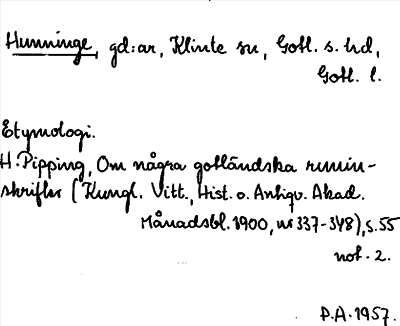 Hunninge, gd:ar, Klinte sn, Gotl. s. hd,
Gotl. l.
Etymologi.
H. Pipping, Om några gotländska runin-
skrifter (Kungl. Vitt., Hist. o. Antiqv. Akad.
Månadsbl. 1900, nr 337-348), s. 55
not. 2.
P.A. 1957.